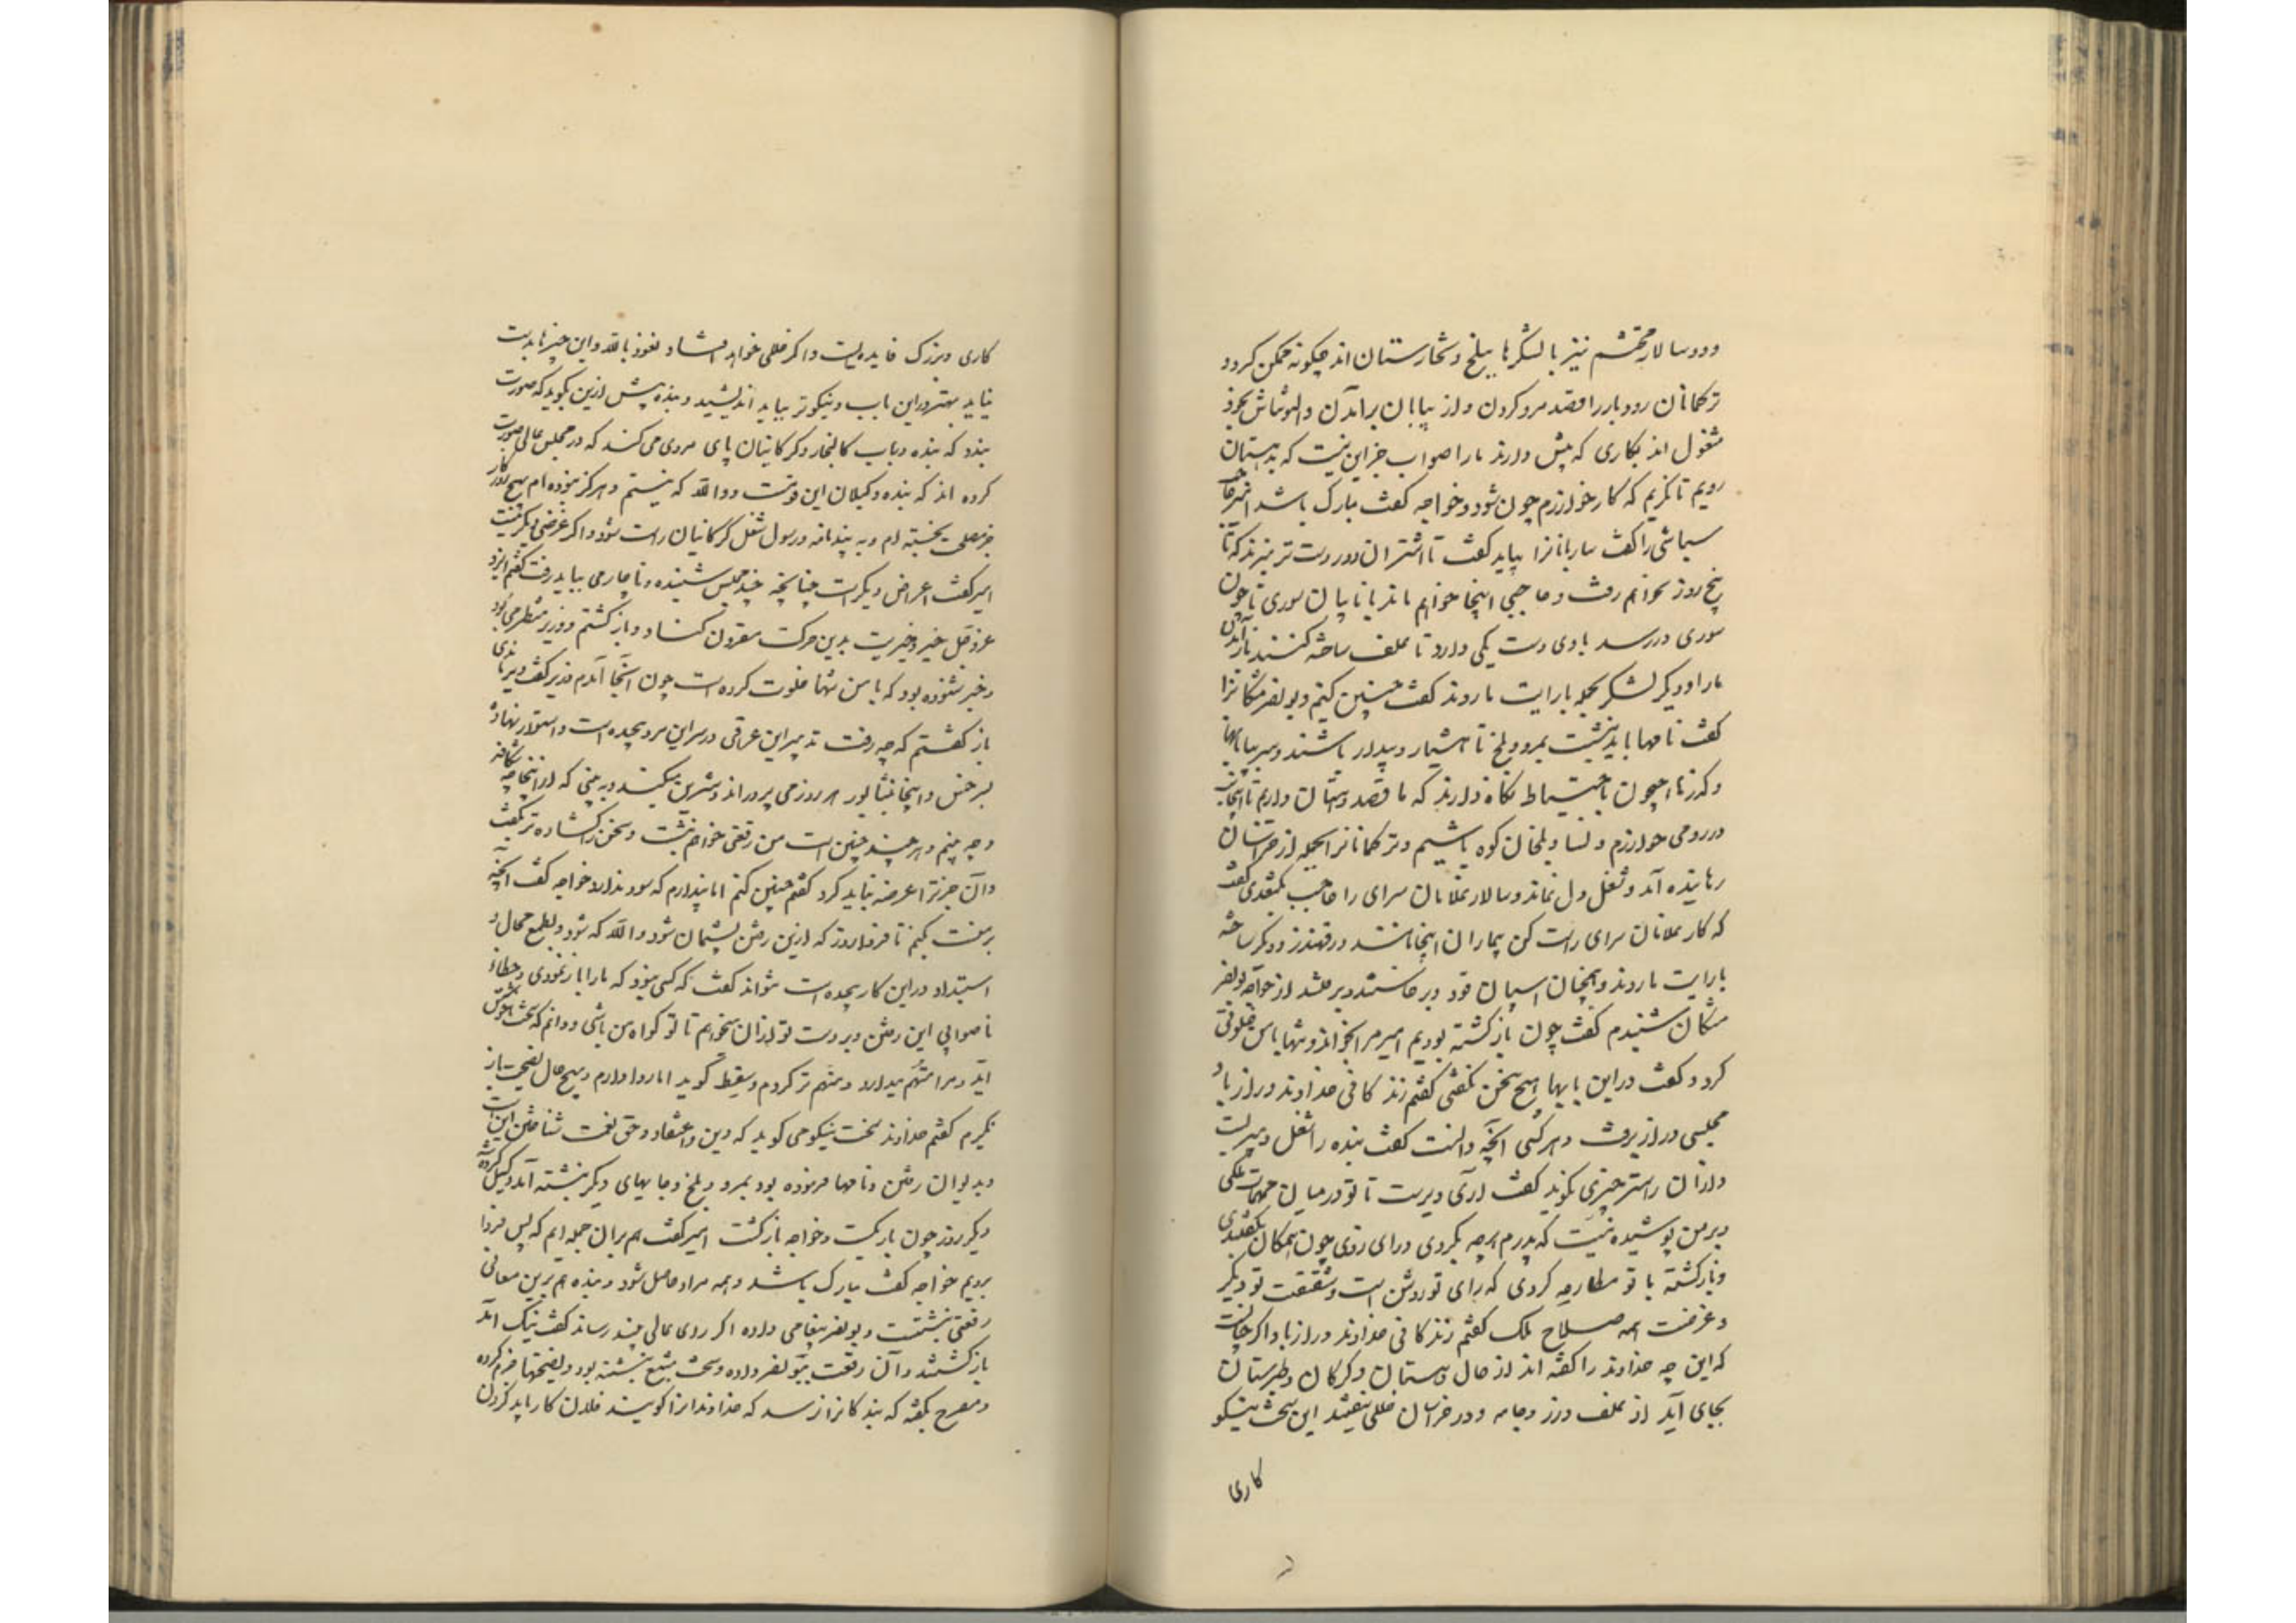 ودو سالار محتشم نیز با لشکرها ببلخ و تخارستان اند چگونه ممکن کردد
ترکمانان رودبار را قصد مرو کردن و از بیابان برآمدن و التونتاش بخود
مشغول اند بکاری که پیش دارند ما را صواب جز این نیست که بدهستان
رویم تا نکریم که کار خوارزم چون شود و خواجه کفت مبارک باشد امیر حاجب
سباشی را کفت ساربانانرا بباید کفت تا اشتران دوردست تر نبرند که تا
پنج روز بخواهم رفت و حاجبی اینجا خواهم ماند با نایبان سوری تا چون
سوری در رسد با وی دست یکی دارد تا علف ساخته کنند باز آمدن
ما را و دیکر لشکر بجمله با رایت ما روند کفت چنین کنم و بونصر مشکانرا
کفت نامها باید نبشت بمرو و بلخ تا هشیار و بیدار باشند و سر بیابانها
و کذرنای جیحون باحتیاط نکاه دارند که ما قصد دهستان داریم تا اینجانب
در روی خوارزم و نسا و بلخان کوه باشیم و ترکمانانرا بجمله از خراسان
رمانیده آید و شغل دل نماند و سالار غلامان سرای را حاجب بکتغدی کفت
که کار غلامان سرای راست کن بیماران اینجا مانند در قهندز و دیکر ساخته
با رایت ما روند و همچنان اسپان قود و برخاستند و برفتند از خواجه بونصر
مشکان شنیدم کفت چون بازکشته بودیم امیر مرا بخواند و تنها با من خلوتی
کرد و کفت در این بابها هیچ سخن نکفتی کفتم زندکانی خداوند دراز باد
مجلسی دراز برفت و هر کسی آنچه دانست کفت بنده را شغل دبیریست
و از آن راستر چیزی نکوید کفت آری دیریست تا تو در میان مهمات ملکی
و بر من پوشیده نیست که پدرم هر چه بکردی و رای زدی چون همکان بکفتندی
و بازکشته با تو مطارحه کردی که رای تو روشن است و شفقت تو دیکر
و غرضت همه صلاح ملک کفتم زندکانی خداوند دراز باد اکر چنانست
که این چه خداوند را کفته اند از حال دهستان و کرکان و طبرستان
بجای آید از علف و زر و جامه و در خراسان خللی نیفتد این سخت نیکو
کاری
کاری و بزرک فایده ایست و اکر خللی خواهد افتاد و نعوذ بالله و این چیزها بدست
نیاید بهتر در این باب و نیکوتر بباید اندیشید و بنده بیش از این نکوید که صورت
بندد که بنده در باب کالنجار و کرکانیان پای مردی می کند که در مجلس عالی صورت
کرده اند که بنده وکیلان این قوم است و والله که نیستم و هرکز نبوده ام بهیچ روزکار
جز مصلحت نجسته ام و به پندنامه و رسول شغل کرکانیان راست شود و اکر غرضی دیکر نیست
امیر کفت اعراض دیکر است چنانچه چند مجلس شنیده و ناچار می بباید رفت کفتم ایزد
عز و جل خیر و خیریت بدین حرکت مقرون کناد و بازکشتم و وزیر منتظر می بود
و خبر شنوده بود که با من تنها خلوت کرده است چون آنجا آمدم وزیر کفت دیر ماندی
باز کفتم که چه رفت تدبیر این عراقی در سر این مرد پیچیده است و استوار نهاده
بو الحسن و اینجا نیشابور هر روز می پروراند و شیرین میکند و به بینی که از اینجا چه شکافد
و چه بینم و هر چند چنین است من رقعتی خواهم نبشت و سخن را کشاده تر بکفت
و آن جز ترا عرضه نباید کرد کفتم چنین کنم اما پندارم که سود ندارد خواجه کفت آنچه
بر منست بکنم تا فردا روز که از این رفتن پشیمان شود و الله که شود و بطمع محال و
استبداد در این کار پیچیده است نتواند کفت که کسی نبود که ما را باز نمودی و خطاء
ناصوابی این رفتن و بر دست تو از آن میخواهم تا تو کواه من باشی و دانم که سخت ناخوش
آید و مرا متهم میدارد و متهم تر کردم و سقط کوید اما روا دارم و بهیچ حال نصیحت باز
نکیرم کفتم خداوند سخت نیکو می کوید که دین و اعتقاد و حق نعمت شناختن اینست
و بدیوان رفتن و نامها فرموده بود بمرو و بلخ و جایهای دیکر نبشته آمد و کسیل کرده شد
دیکر روز چون بار بکسست و خواجه بازکشت امیر کفت هم بران جمله ایم که پس فردا
برویم خواجه کفت مبارک باشد و همه مراد حاصل شود و بنده هم برین معانی
رقعتی نبشتست و بونصر پیغامی داده اکر رای عالی بیند رساند کفت نیک آمد
بازکشتند و آن رقعت ببونصر داده و سخت مشبع نبشته بود و نصیحتها جزم کرده
و مصرح بکفته که بندکانرا نرسد که خداوندانرا کویند فلان کار باید کردن